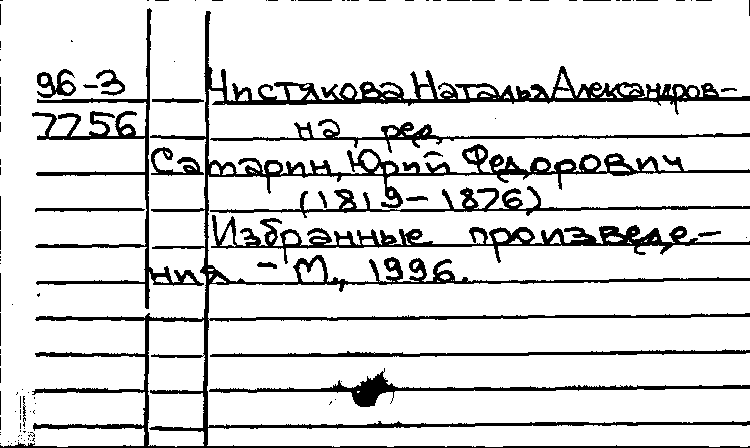 96-3 Чистякова, Наталья Александров-
7756 на, ред.
Самарин, Юрий Федорович
(1819-1876)
Избранные произведе-
ния. - М., 1996.